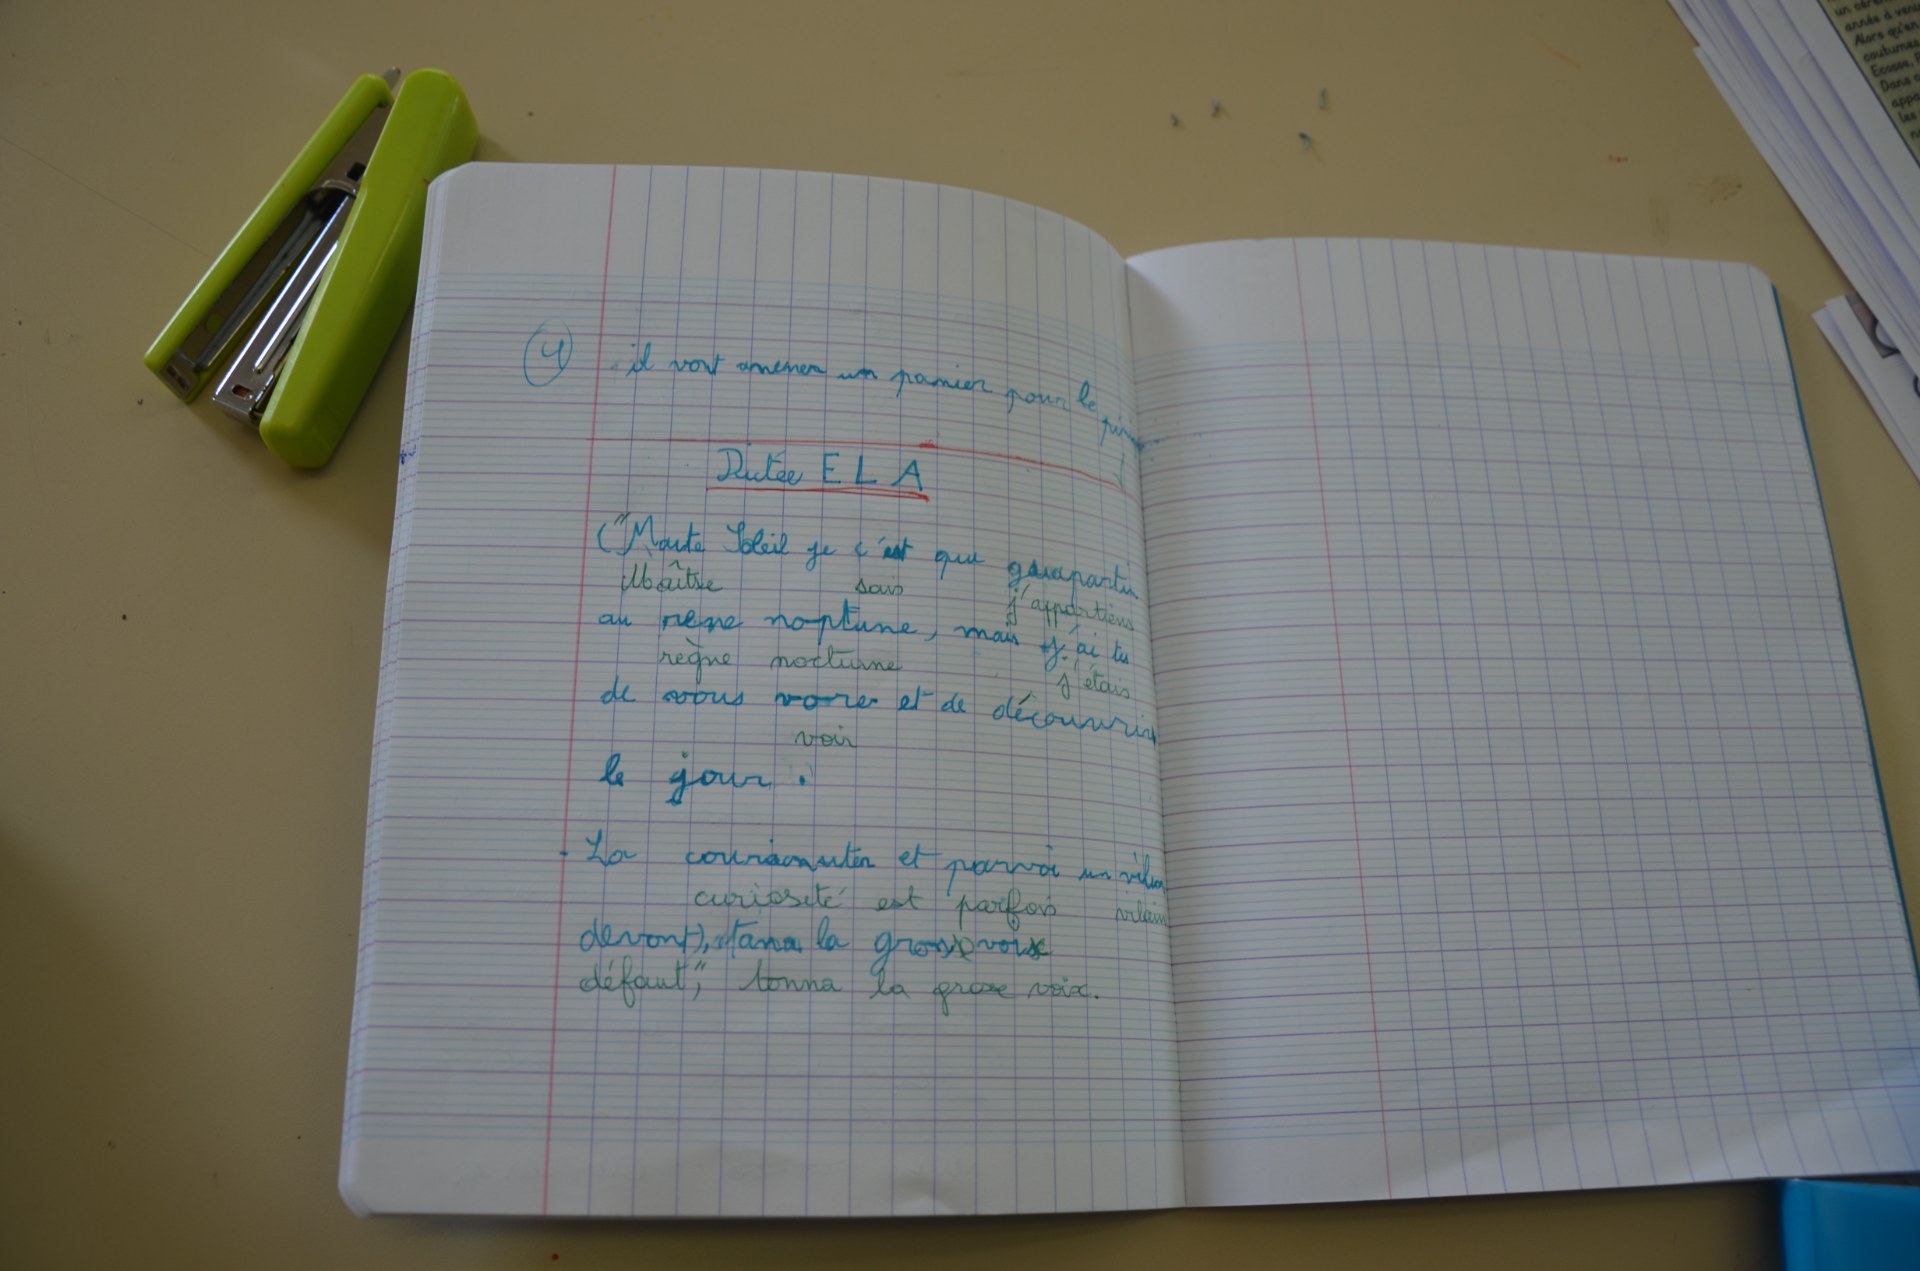 4 il vont amener un panier pour le
Dictée E L A
("Maute Soleil je c'est que
Maître sais j'appartiens
au rene noptune, mais j'ai tu
règne nocturne j'étais
de vous vore et de découvrir
voir
le jour.
- La et un
curiosité est parfois vilain
devont), tana la grosse voix
défaut", tonna la grosse voix.
un
année à
Alors qu'en
coutumes
Ecosse,
Dans
les